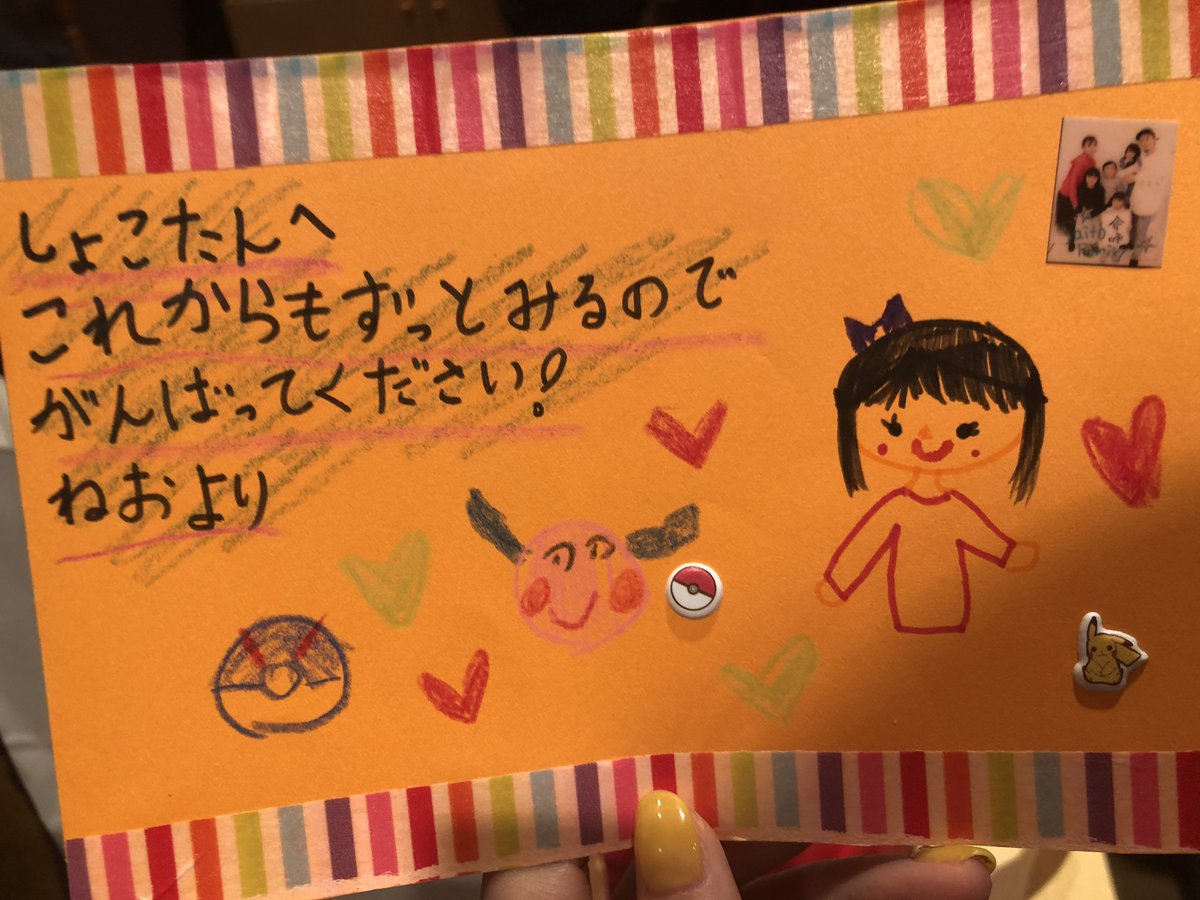 しょこたんへ
これからもずっとみるので
がんばってください!
ねおより
Family